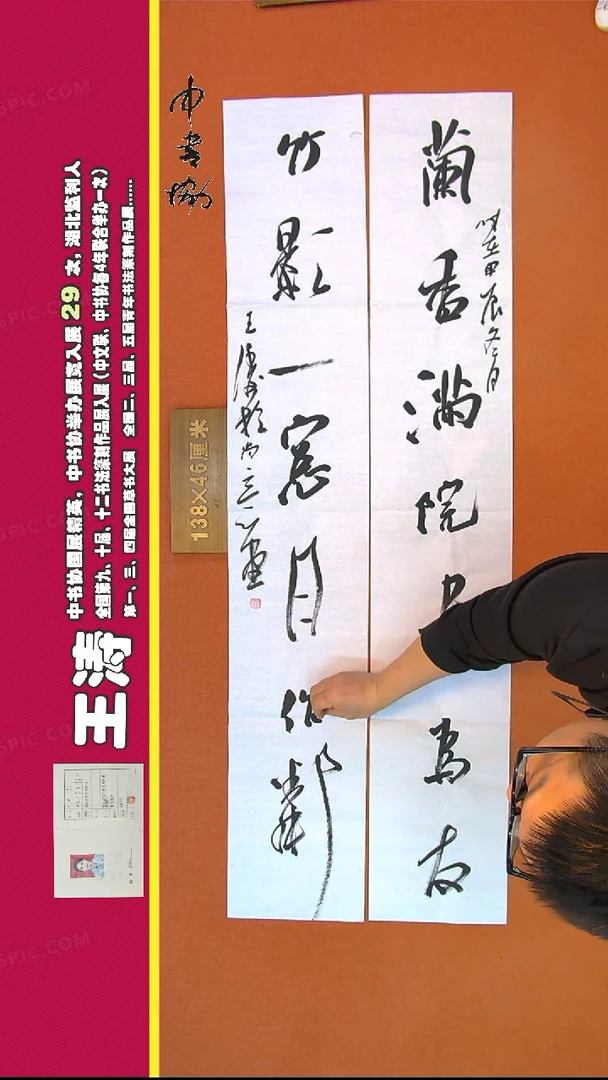 中书协国展精英，中书协举办展览入展 29 次，湖北监利人
全国第九、十届、十二书法篆刻作品展入展（中文联、中书协每4年联合举办一次）
第一、三、四届全国草书大展 全国二、三届、五届青年书法篆刻作品展......
王涛
中書協
138×46厘米
蘭香滿院為友
时在甲辰冬月
竹影一窓月作鄰
王濤於尚立心